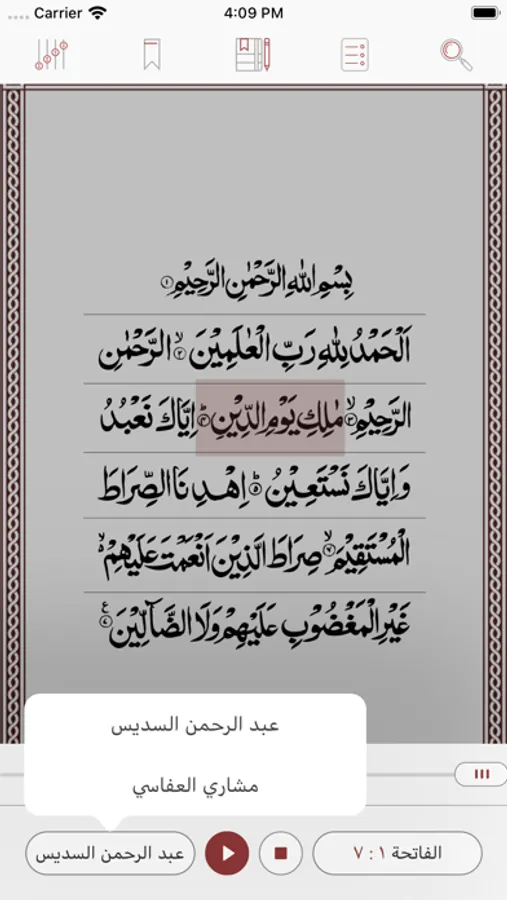 Carrier 4:09 PM
بِسْمِ اللهِ الرَّحْمٰنِ الرَّحِيْمِ ۝١
اَلْحَمْدُ لِلّٰهِ رَبِّ الْعٰلَمِيْنَ ۙ۝٢ الرَّحْمٰنِ
الرَّحِيْمِ ۙ۝٣ مٰلِكِ يَوْمِ الدِّيْنِ ۭ۝٤ اِيَّاكَ نَعْبُدُ
وَاِيَّاكَ نَسْتَعِيْنُ ۭ۝٥ اِهْدِنَا الصِّرَاطَ
الْمُسْتَقِيْمَ ۙ۝٦ صِرَاطَ الَّذِيْنَ اَنْعَمْتَ عَلَيْهِمْ ۙ
غَيْرِ الْمَغْضُوْبِ عَلَيْهِمْ وَلَا الضَّاۤلِّيْنَ ۝٧ ع
عبد الرحمن السديس
مشاري العفاسي
الفاتحة ١ : ٧
عبد الرحمن السديس